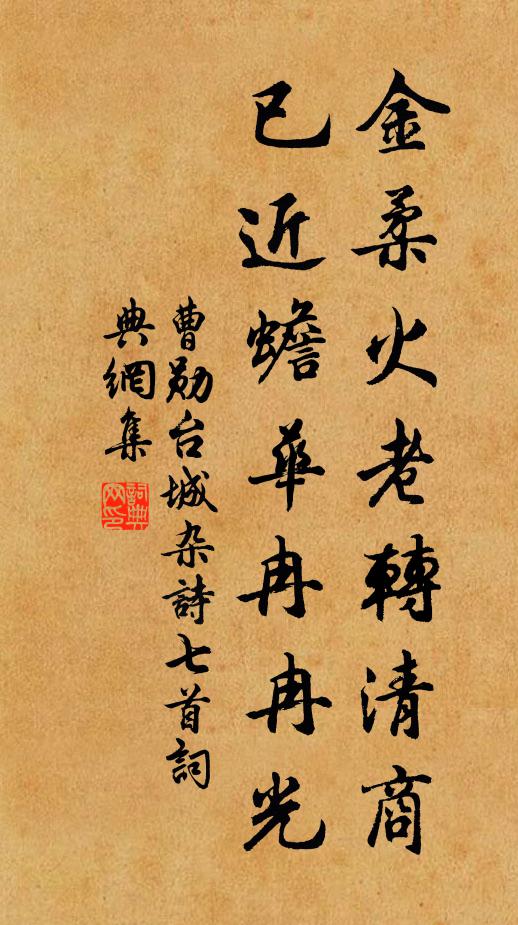 金柔火老轉清商
已近蟾華冉冉光
曹勛台城杂詩七首詞
典網集
詞典网印